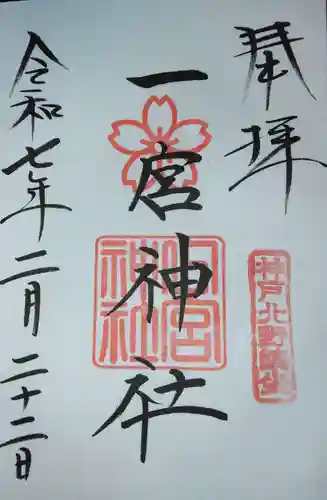 奉拝
神戸北野鎮坐
一宮神社
一宮神社
令和七年二月二十二日